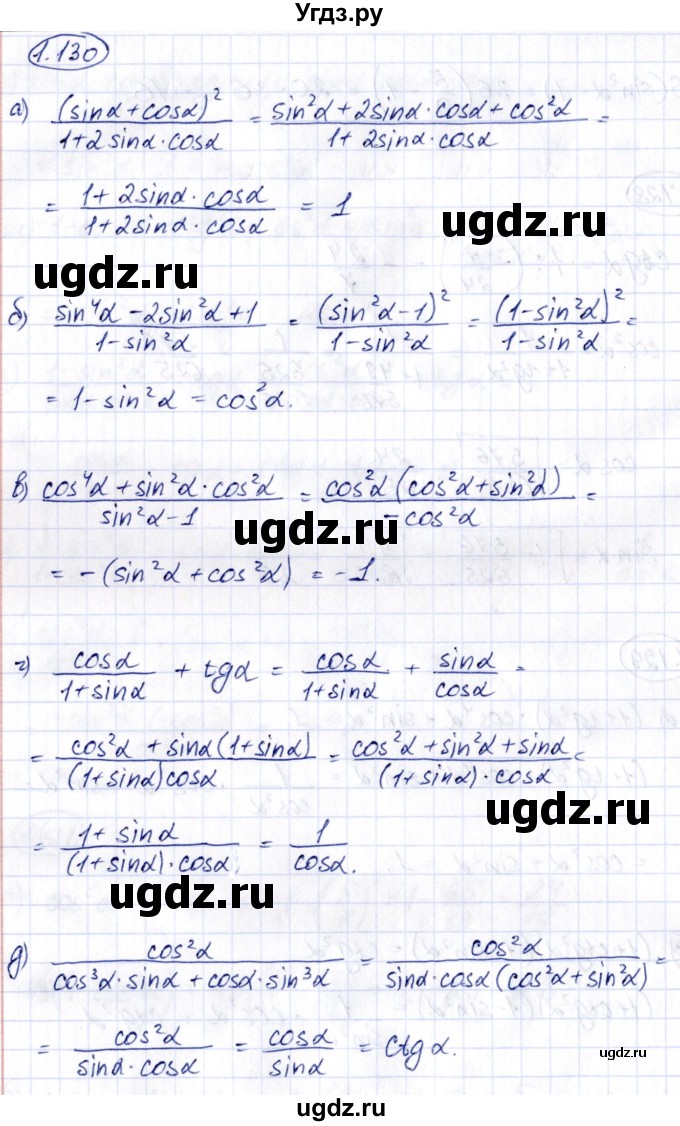 Угдз.ру
1.130
а) (sinα+cosα)² / (1+2sinα·cosα) = (sin²α+2sinα·cosα+cos²α) / (1+2sinα·cosα) =
= (1+2sinα·cosα) / (1+2sinα·cosα) = 1
ugdz.ru
ugdz.ru
б) (sin⁴α-2sin²α+1) / (1-sin²α) = (sin²α-1)² / (1-sin²α) = (1-sin²α)² / (1-sin²α) =
= 1-sin²α = cos²α.
в) (cos⁴α+sin²α·cos²α) / (sin²α-1) = cos²α(cos²α+sin²α) / (-cos²α) =
ugdz.ru
= -(sin²α+cos²α) = -1.
г) cosα / (1+sinα) + tgα = cosα / (1+sinα) + sinα / cosα =
= (cos²α+sinα(1+sinα)) / ((1+sinα)cosα) = (cos²α+sin²α+sinα) / ((1+sinα)·cosα) =
ugdz.ru
= (1+sinα) / ((1+sinα)·cosα) = 1 / cosα.
ugdz.ru
д) cos²α / (cos³α·sinα+cosα·sin³α) = cos²α / (sinα·cosα(cos²α+sin²α)) =
= cos²α / (sinα·cosα) = cosα / sinα = ctgα.
ugdz.ru
ugdz.ru